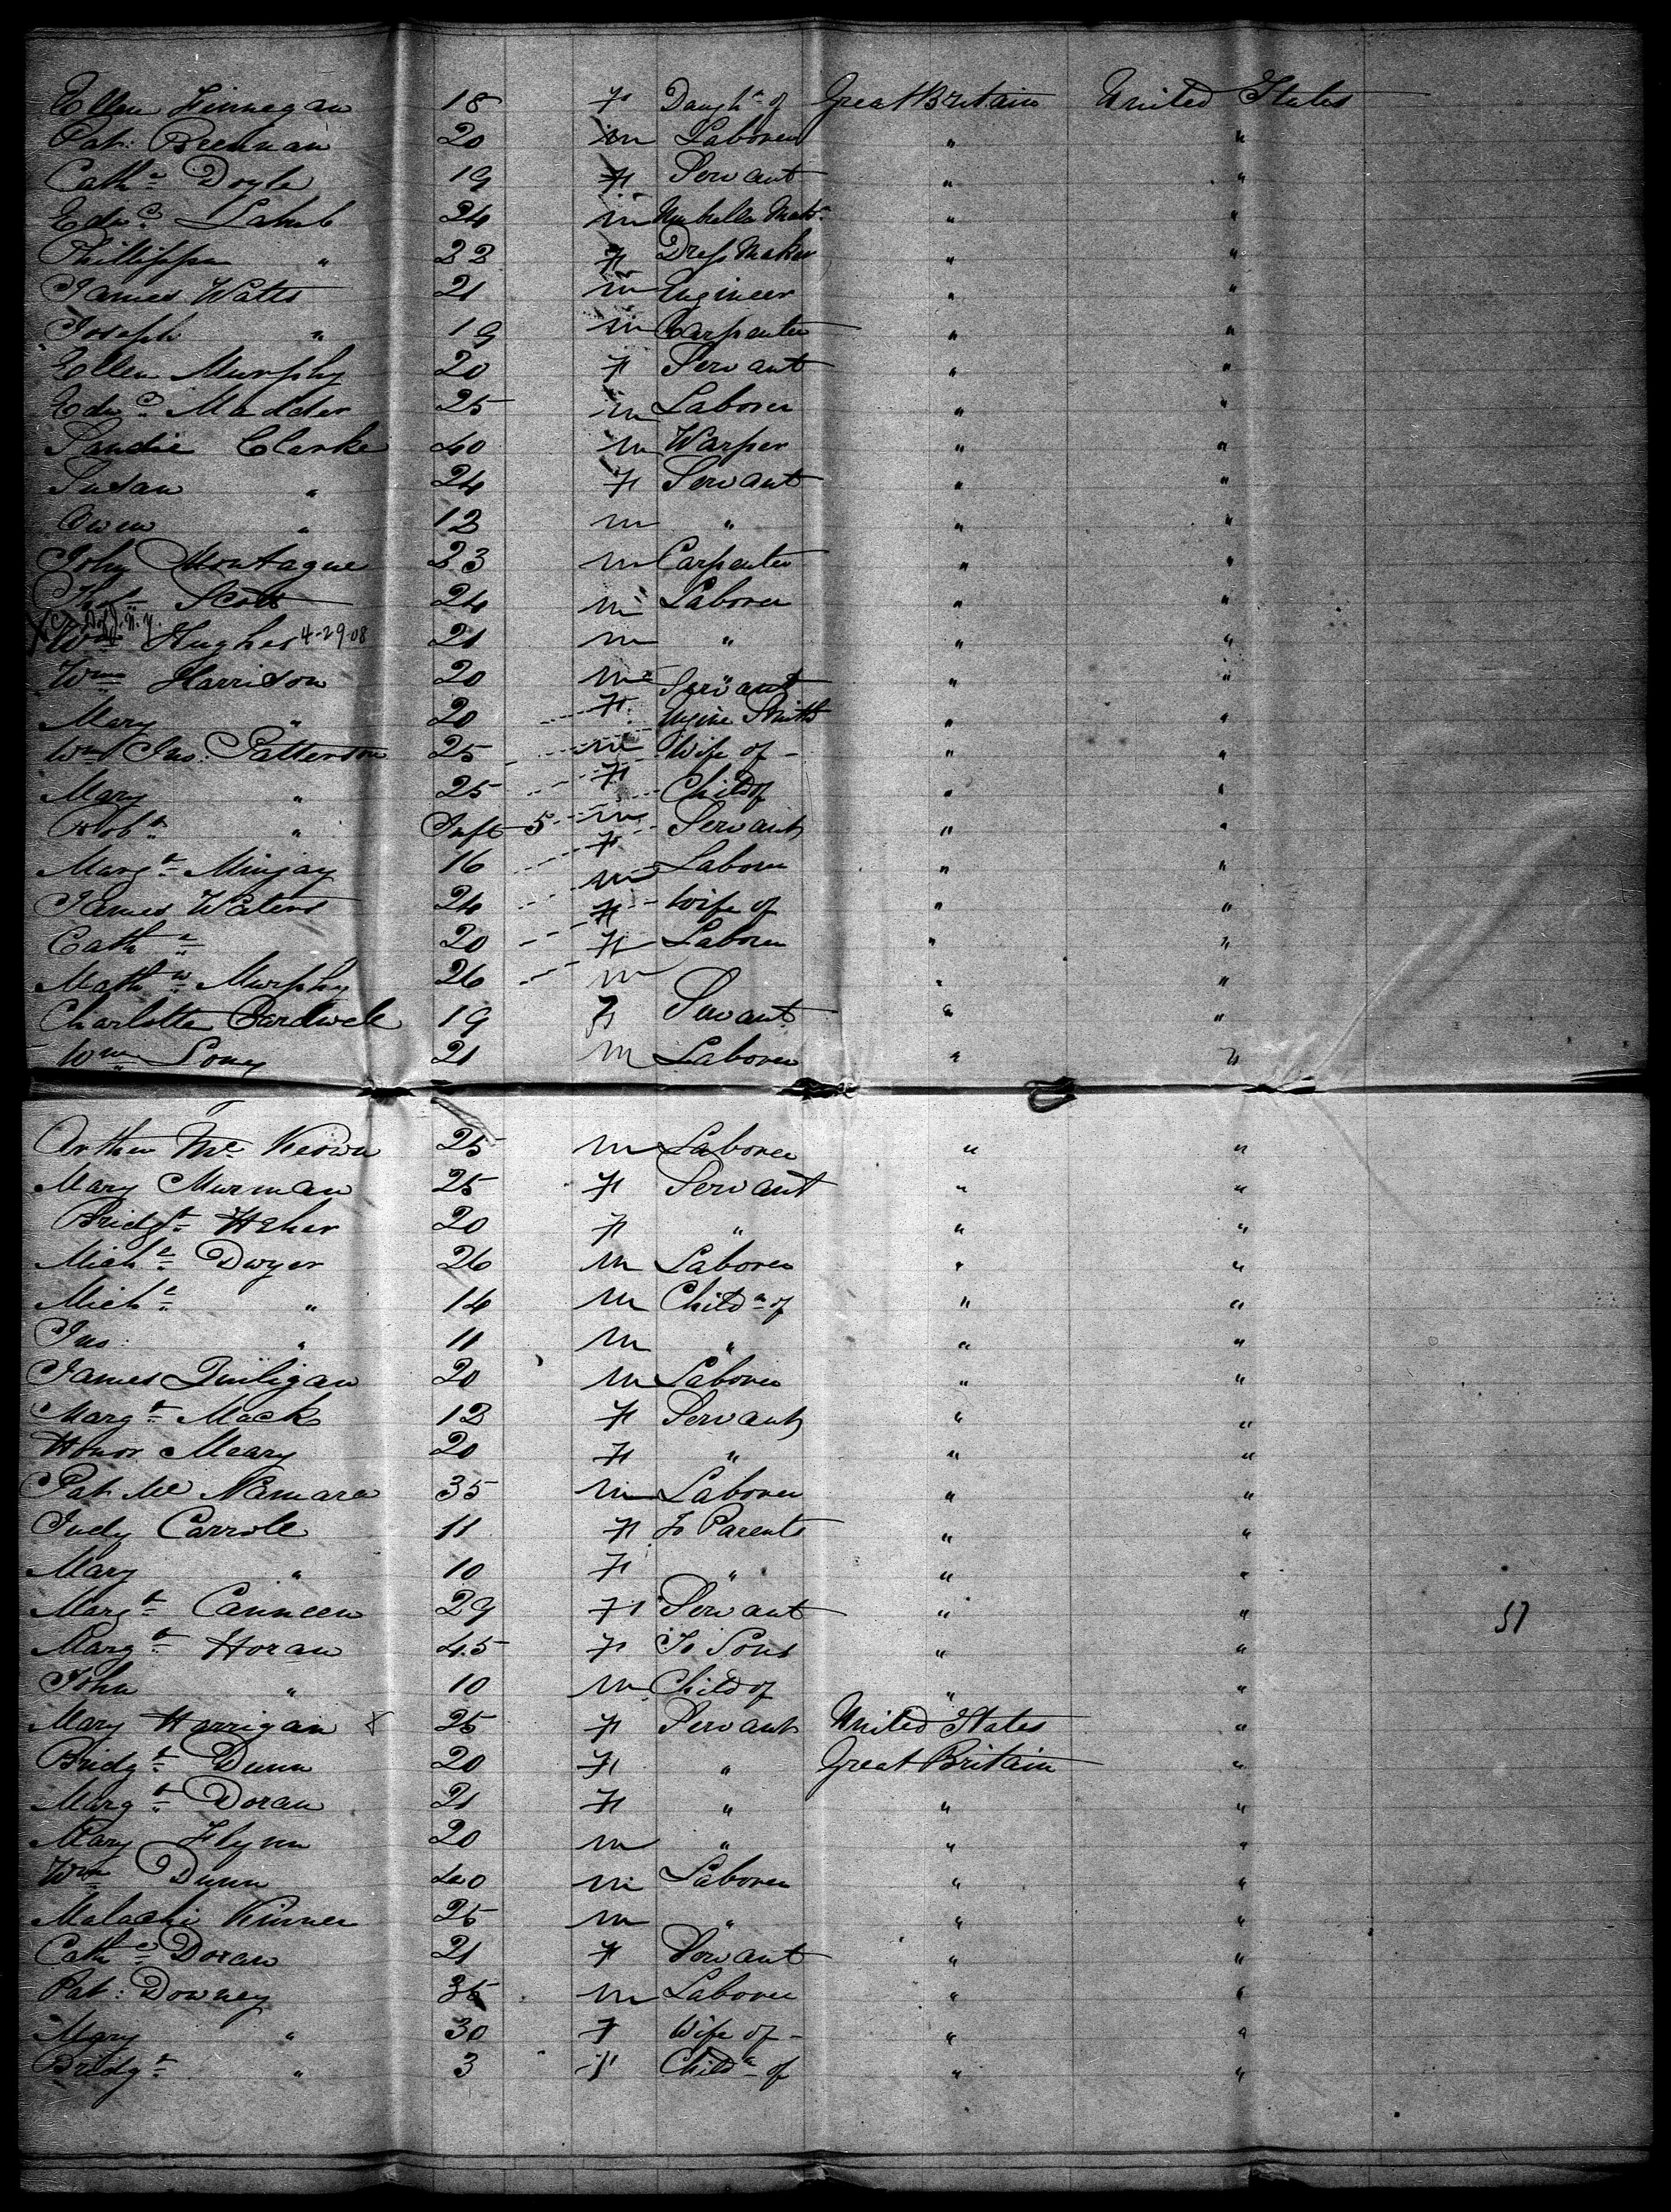 Ellen Finnegan 18 F Daughr of Great Britain United States
Pat: Brennan 20 m Laborer " "
Cathe Doyle 19 F Servant " "
Edwd Lamb 24 m Umbrella Makr " "
Phillippa " 22 F Dress Maker " "
James Watts 21 m Engineer " "
Joseph " 19 m Carpenter " "
Ellen Murphy 20 F Servant " "
Edwd Madder 25 m Laborer " "
Sandie Clarke 40 m Warper " "
Susan " 24 F Servant " "
Owen " 12 m " " "
John Montague 23 m Carpenter " "
Thos Scott 24 m Laborer " "
N.Y.
Wm Hughes 4-29-08 21 m " " "
Wm Harrison 20 m Servant " "
Mary " 20 F Engine Smith " "
Wm Jno. Patterson 25 m Wife of - " "
Mary " 25 F Child of " "
Robt " Inft 5 m Servant " "
Margt Minjay 16 F Laborer " "
James Waters 24 m Wife of " "
Cathe " 20 F Laborer " "
Mathw Murphy 26 m " "
Charlotte Cardwell 19 F Servant " "
Wm Long 21 m Laborer " "
Arthur McKeown 25 m Laborer " "
Mary Murnan 25 F Servant " "
Bridgt Heher 20 F " " "
Michl Dwyer 26 m Laborer " "
Michl " 14 m Childn of " "
Jno: " 11 m " " "
James Quiligan 20 m Laborer " "
Margt Mack 12 F Servant " "
Honor Meary 20 F " " "
Pat McNamara 35 m Laborer " "
Judy Carroll 11 F To Parents " "
Mary " 10 F " " "
Margt Canneen 29 F Servant " " 57
Margt Horan 45 F To Sons " "
John " 10 m Child of " "
Mary Harrigan x 25 F Servant United States "
Bridgt Dunn 20 F " Great Britain "
Margt Doran 21 F " " "
Mary Flynn 20 m " " "
Wm Dunn 40 m Laborer " "
Malachi Kinner 25 m " " "
Cathe Doran 21 F Servant " "
Pat: Downey 35 m Laborer " "
Mary " 30 F Wife of - " "
Bridgt " 3 F Childn of " "